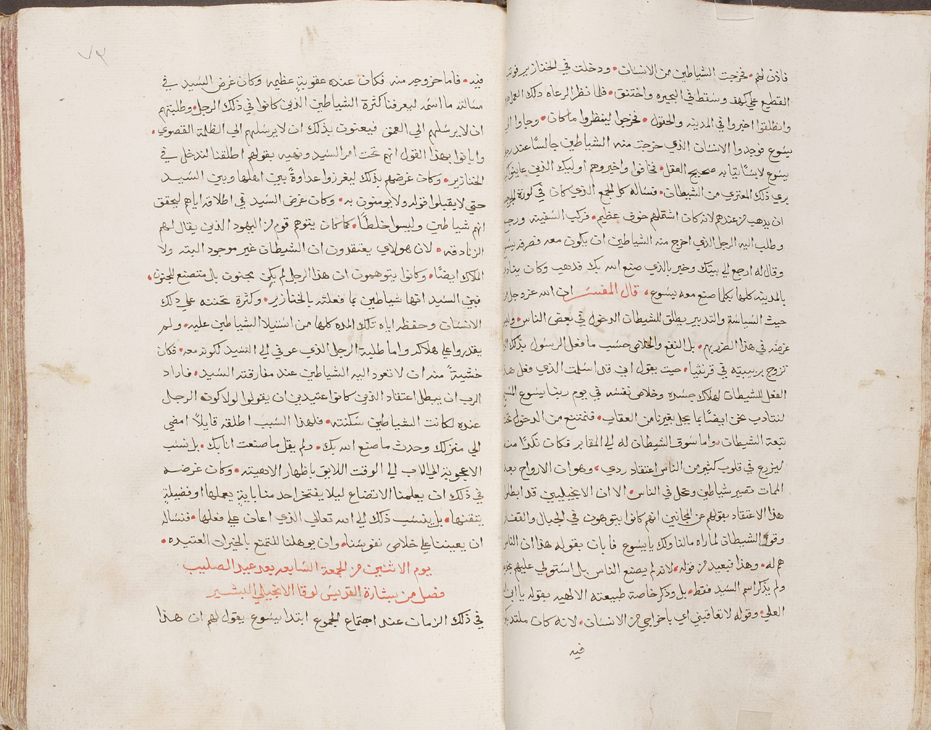 فاذن لهم • فخرجت الشياطين من الانسان • ودخلت في الخنازير فوثب
القطيع علي كهف وسقط في البحيره واختنق • فلما نظر الرعاه ذلك
وانطلقوا اخبروا في المدينه والحقول • فخرجوا لينظروا ما كان • وجاوا الي
يسوع فوجدوا الانسان الذي خرجت منه الشياطين جالسًا عند
يسوع لابسًا ثيابه صحيح العقل • فخافوا واخبروهم اوليك الذين عاينوا
بري ذلك المعتري من الشيطان • فسأله كل الجمع الذي كان في كورة
ان يذهب من عندهم لانه كان اشتملهم خوف عظيم • فركب السفينه ورجع
وطلب اليه الرجل الذي اخرج منه الشياطين ان يكون معه فصرفه
وقال له ارجع الي بيتك وخبر بالذي صنع الله بك فذهب وكان ينادي
بالمدينه كلها بكلما صنع معه يسوع • قال المفسر ان الله عز وجل
حيث السياسة والتدبير يطلق للشيطان الدخول في بعض الناس •
غرضه في هذا الضرر بهم • بل النفع والخلاص حسب ما فعل الرسول بذلك
تزوج بربيبته في قرنثيا • حيث يقول اني قد اسلمت الذي فعل هذا
الفعل للشيطان لهلاك جسده وخلاص نفسه في يوم ربنا يسوع
لنتادب نحن ايضًا بما يحل بغيرنا من العقاب • فنمتنع من الدخول
تبعة الشيطان • واما سوق الشيطان له الي المقابر فكان مكرًا منه
ليزرع في قلوب كثير من الناس اعتقاد ردي • وهو ان الارواح بعد
الممات تصير شياطين وتحل في الناس • الا ان الانجيليين قد ابطلوا
هذا الاعتقاد بقولهم عن المجانين انهم كانوا يتوهون في الجبال والقفار
وقول الشيطان لما راه مالنا ولك يا يسوع فابان بقوله هذا ان
هم له • وهذا فبعيد من قوله • لانه لم يصنع الناس بل استولي عليهم
ولم يذكر اسم السيد فقط • بل وذكر خاصة طبيعته الالهيه بقوله يا ابن
العلي وقوله لا تعاقبني اي باخراجي من الانسان • لانه كان ملتذ
فيه
٧٣
فيه • فاما خروجه منه فكان عنده عقوبة عظيمه وكان غرض السيد في
مسالته ما اسمه ليعرفنا كثرة الشياطين الذين كانوا في ذلك الرجل وطلبتهم
ان لا يرسلهم الي العمق فيعنون بذلك ان لا يرسلهم الي الظلمة القصوي •
وابانوا بهذا القول انهم تحت امر السيد ونهيه بقولهم اطلقنا لندخل في
الخنازير • وكان غرضهم بذلك ليغرزوا عداوةً بين اهلها وبين السيد
حتي لا يقبلوا قوله ولا يومنون به • وكان غرض السيد في اطلاقه اياهم ليحقق
انهم شياطين وليسوا خلطًا • كما كان يتوهم قوم من اليهود الذين يقال لهم
الزنادقه • لان هولاي يعتقدون ان الشيطان غير موجود البته ولا
الملاك ايضًا • وكانوا يتوهمون ان هذا الرجل لم يكن مجنون بل متصنع للجنون •
فبين السيد انها شياطين بما فعلته بالخنازير • وكثرة تحننه علي ذلك
الانسان وحفظه اياه تلك المده كلها من استيلا الشياطين عليه • ولم
يقدروا علي هلاكه واما طلبة الرجل الذي عوفي الي السيد لكونه معه • فكان
خشيةً منه ان لا تعود اليه الشياطين عند مفارقته السيد • فاراد
الرب ان يبطل اعتقاد الذين كانوا عتيدين ان يقولوا لولا كونه الرجل
عنده لكانت الشياطين سكنته • فلهذا السبب اطلقه قايلاً امضي
الي منزلك وحدث ما صنع الله بك • ولم يقل ما صنعت انا بك • بل نسب
الاعجوبة الي الاب الي الوقت اللايق باظهار لاهيته • وكان غرضه
في ذلك ان يعلمنا الاتضاع ليلا يفتخر احد منا باية يعملها او فضيلة
يتقنها • بل ينسب ذلك الي الله تعالي الذي اعان علي فعلها • فنساله
ان يعيننا علي خلاص نفوسنا • وان يوهلنا للتمتع بالخيرات العتيده •
يوم الاثنين من الجمعة السابعه بعد عيد الصليب
فصل من بشارة القديس لوقا الانجيلي البشير
في ذلك الزمان عند اجتماع الجموع ابتدا يسوع يقول لهم ان هذا